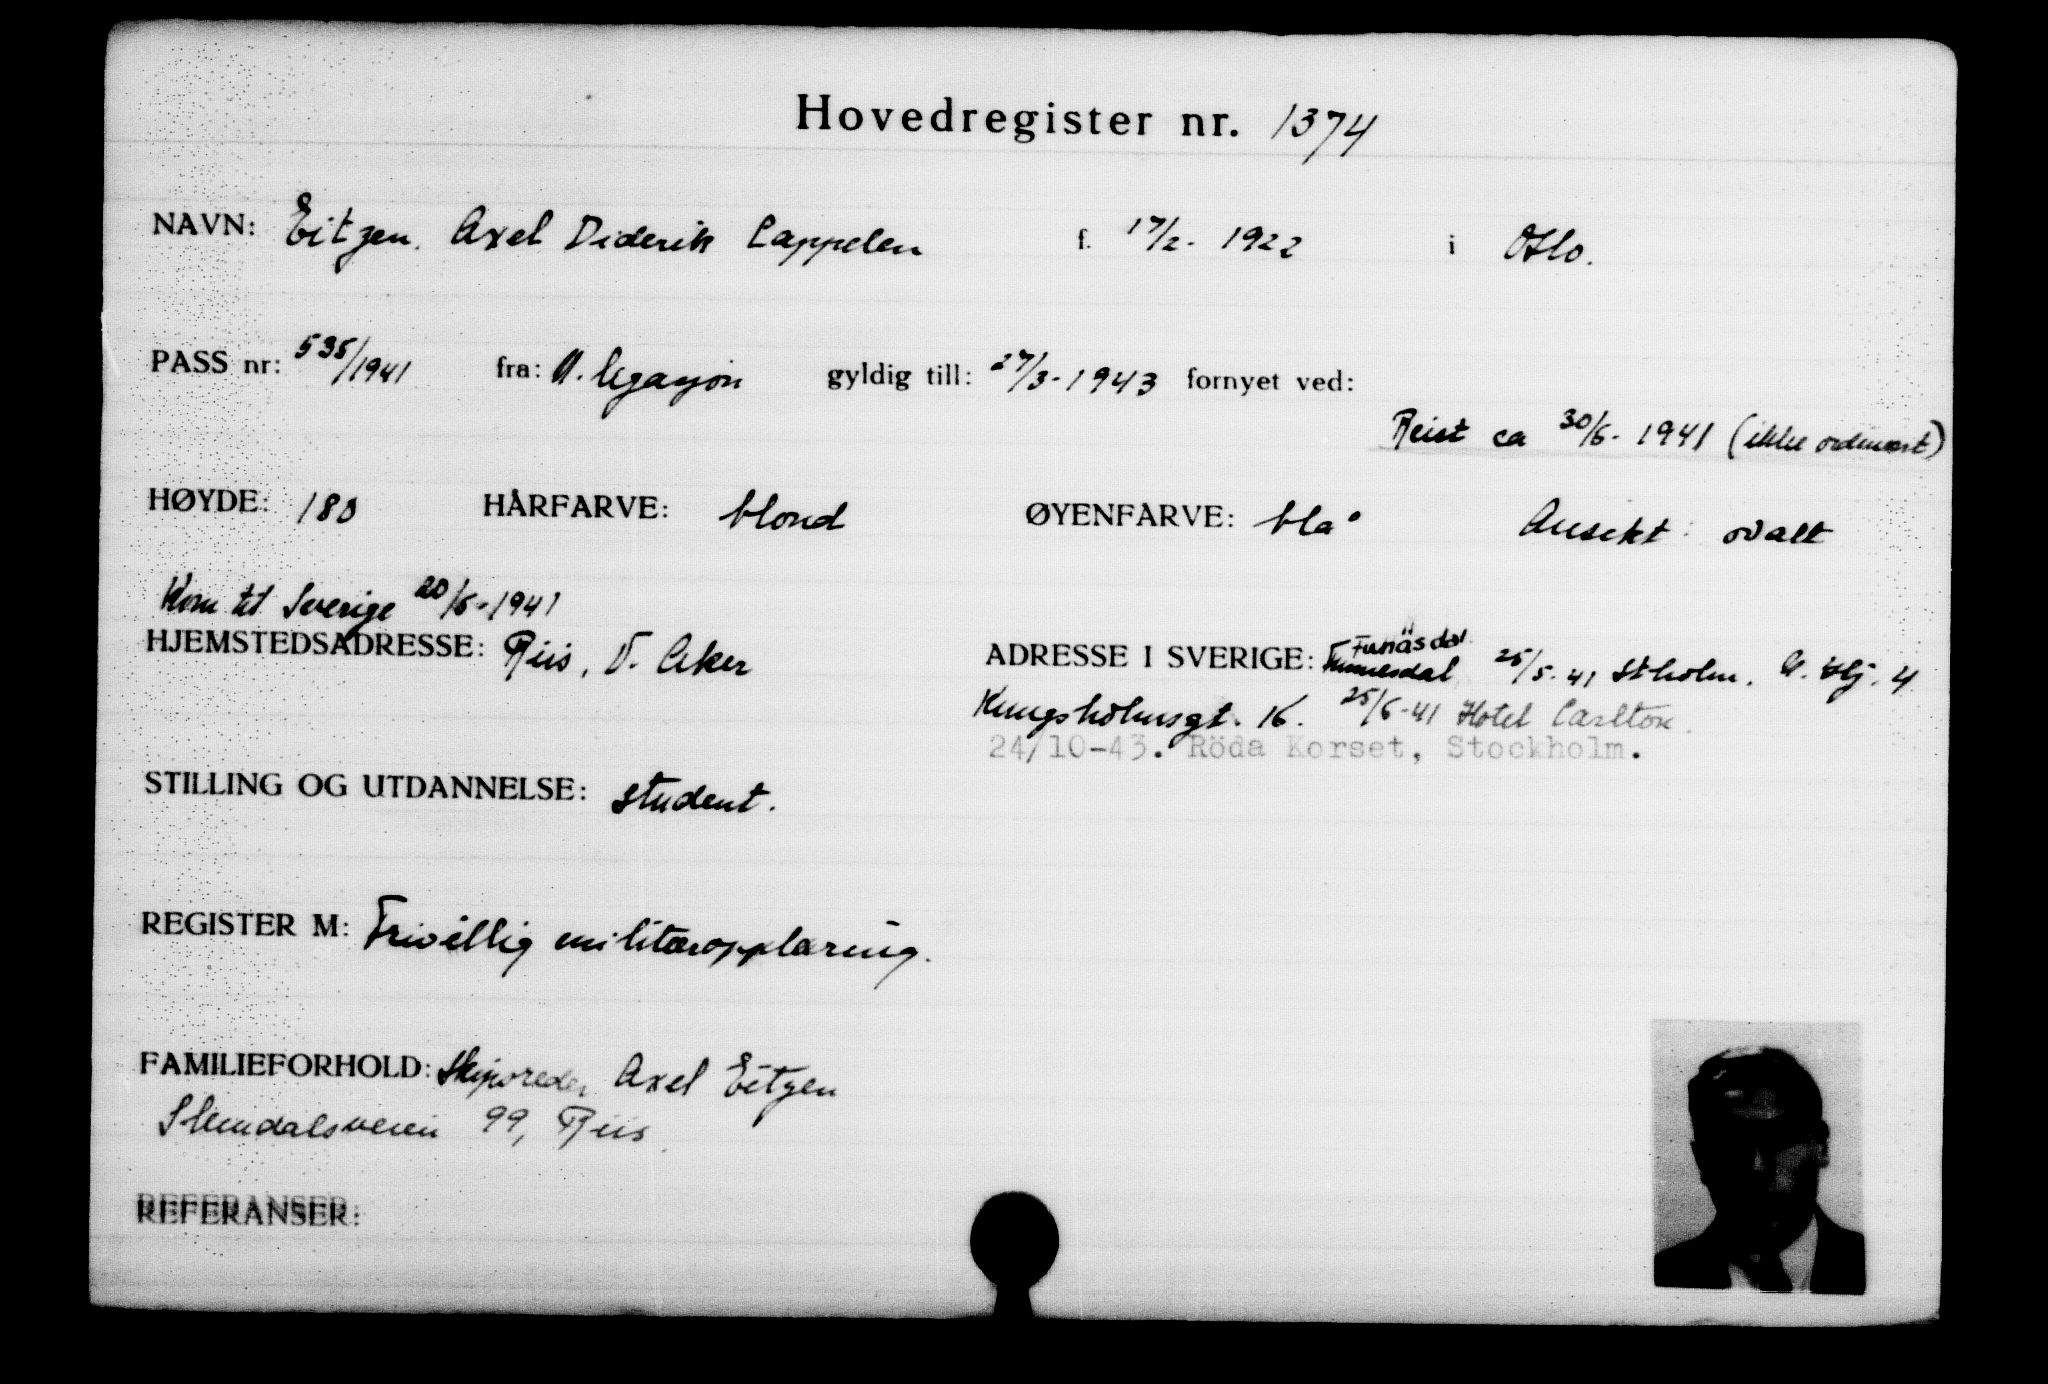 Hovedregister nr. 1374
NAVN: Eitzen. Axel Diderik Cappelen f. 17/2. 1922 i Oslo.
PASS nr: 535/1941 fra: N. legasjon gyldig till: 27/3-1943 fornyet ved:
Reist ca 30/6. 1941 (ikke ordinært)
HØYDE: 180 HÅRFARVE: blond ØYENFARVE: blå Ansikt: ovalt
Kom til Sverige 20/5-1941
HJEMSTEDSADRESSE: Riis, V. Aker ADRESSE I SVERIGE: Funäsdal 25/5.41 Stholm.
Kungsholmsgt. 16. 25/6-41 Hotel Carlton.
24/10-43. Röda Korset, Stockholm.
STILLING OG UTDANNELSE: student.
REGISTER M: Frivillig militæropplæring.
FAMILIEFORHOLD: Skipsreder Axel Eitzen
Slemdalsveien 99, Riis
REFERANSER: